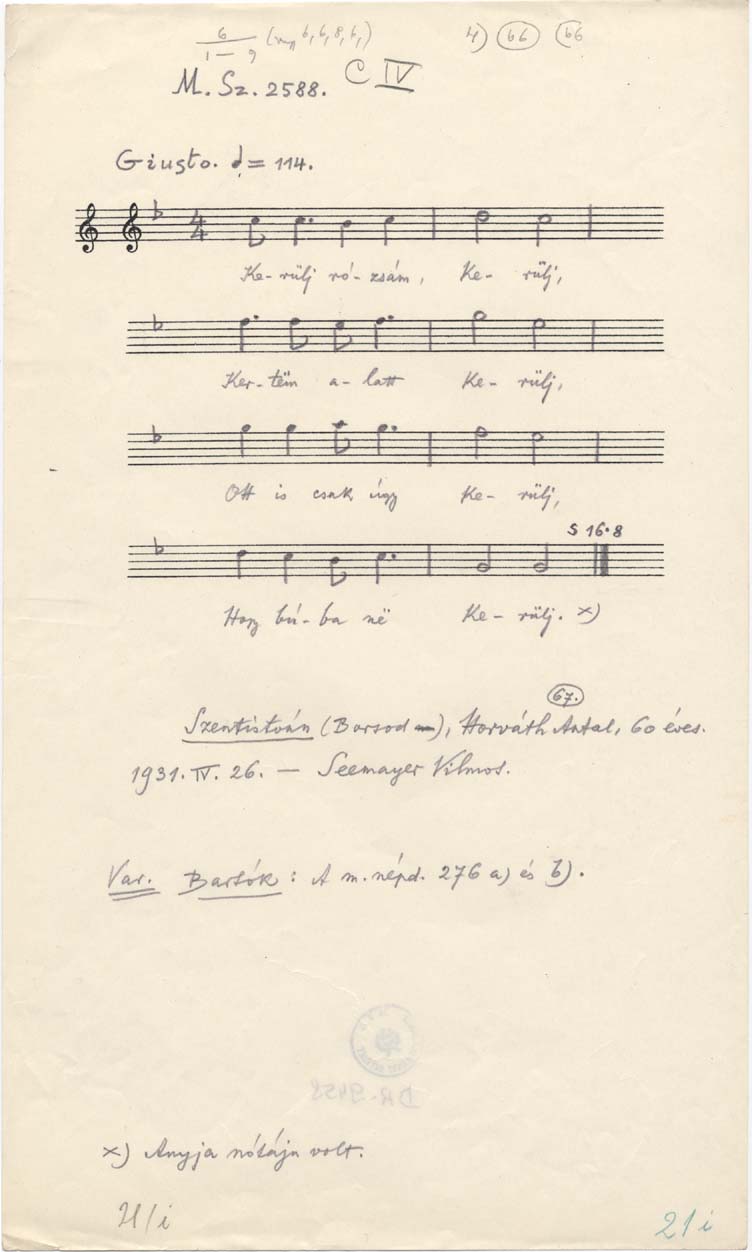 6 (6, 6, 8, 6,) 4) 66 66
1 – 9
M. Sz. 2588. C IV
Giusto. = 114.
4
4
Ke- rülj ró- zsám, Ke- rülj,
Ker- tëm a- latt Ke- rülj,
Ott is csak úgy Ke- rülj,
S 16·8
Hogy bú- ba në Ke- rülj. x)
67.
Szentistván (Borsod), Horváth Antal, 60 éves.
1931. IV. 26. — Seemayer Vilmos.
Var. Bartók: A m. népd. 276 a) és b).
x) Anyja nótája volt.
21/i 21 i